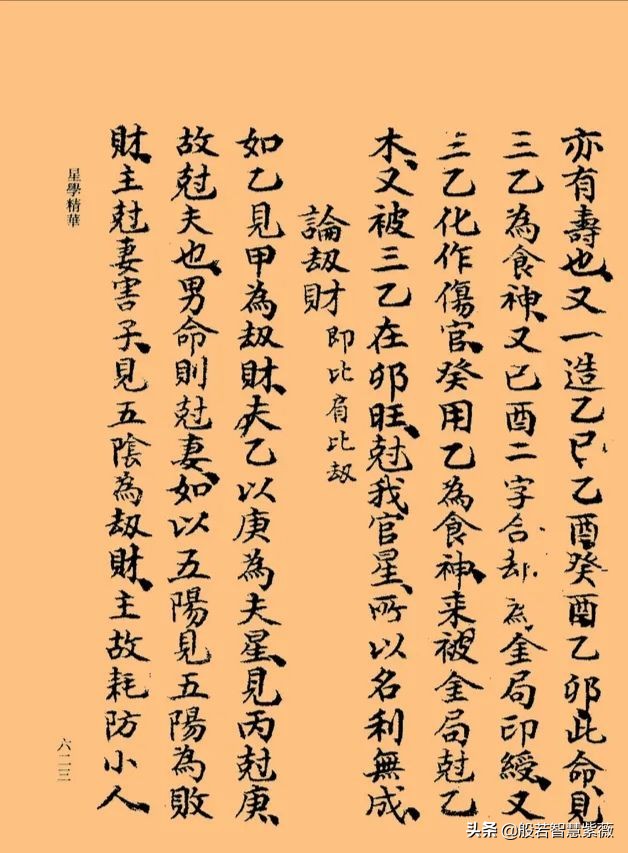 亦有壽也又一造乙巳乙酉癸酉乙卯此命見
三乙為食神又巳酉二字合却為金局印綬又
三乙化作傷官癸用乙為食神来被金局尅乙
木又被三乙在卯旺尅我官星所以名利無成
論刼財 即比肩比刼
如乙見甲為刼財夫乙以庚為夫星見丙尅庚
故尅夫也男命則尅妻如以五陽見五陽為敗
財主尅妻害子見五陰為刼財主故耗防小人
星學精華
六二三
头条 @般若智慧紫薇